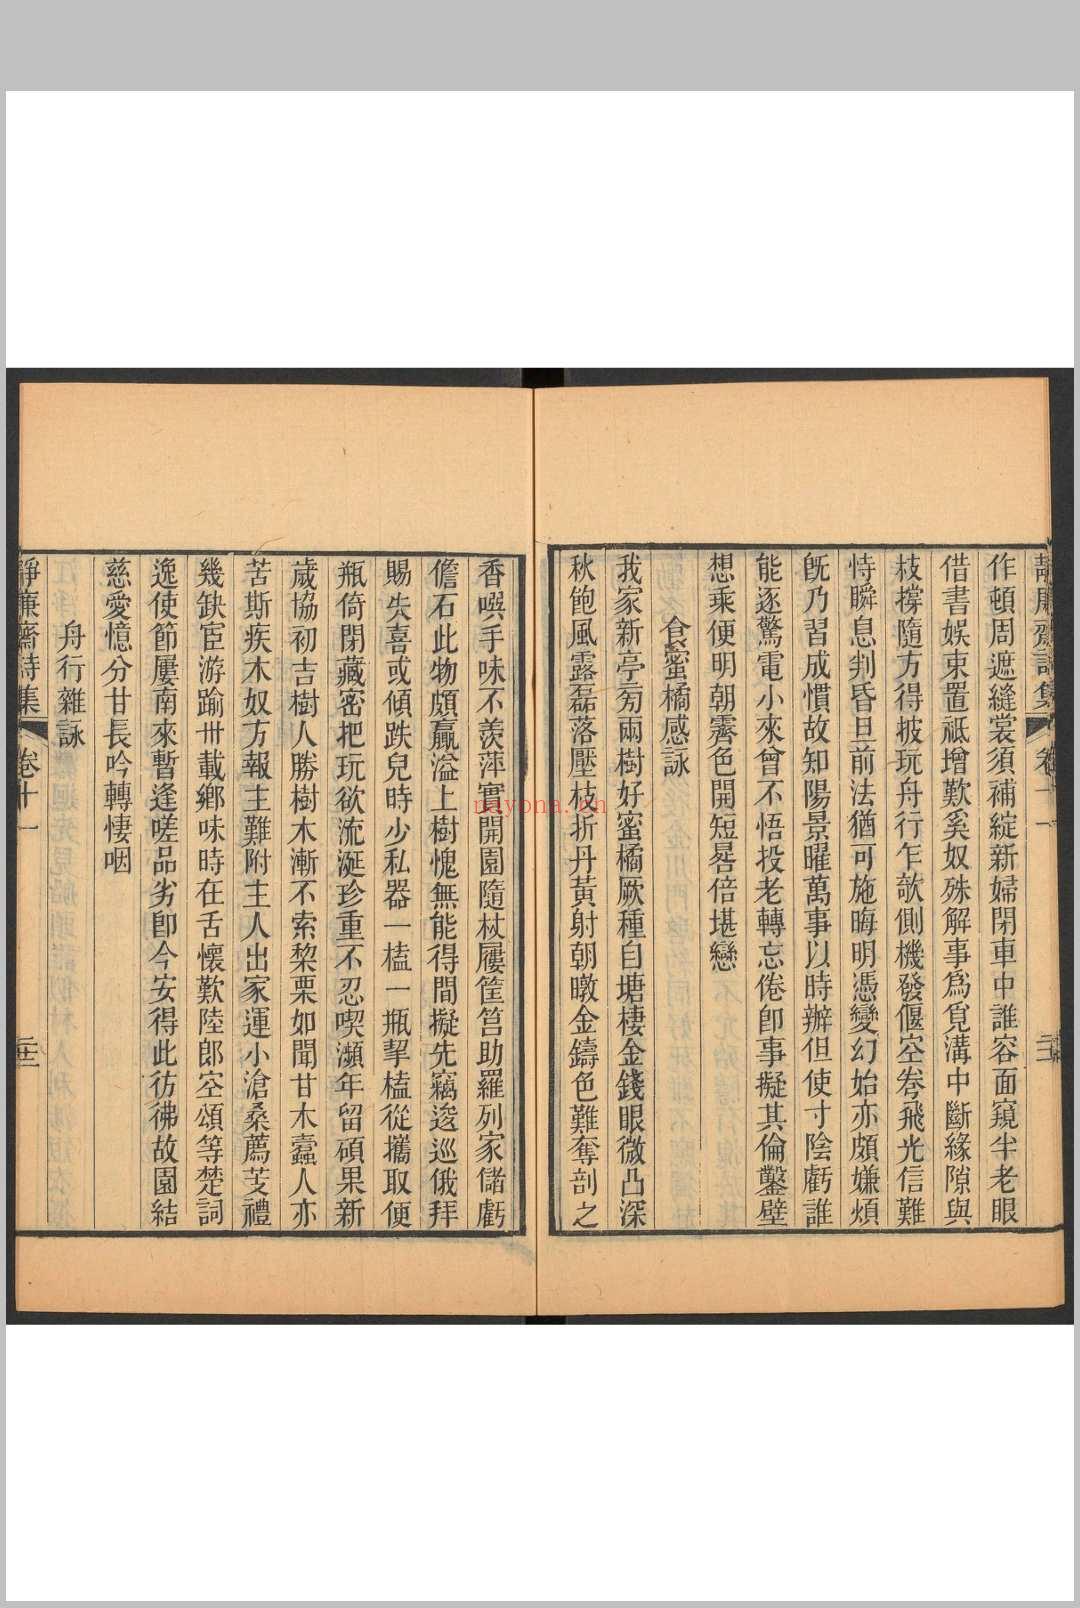 靜廉齋詩集 卷十一
作頓周遮縫裳須補綻新婦閉車中誰容面窺半老眼
借書娛束置祇增歎奚奴殊解事爲覓溝中斷緣隙與
枝撐隨方得披玩舟行乍欹側機發偃空岺飛光信難
恃瞬息判昏旦前法猶可施晦明憑變幻始亦頗嫌煩
旣乃習成慣故知陽景曜萬事以時辦但使寸陰虧誰
能逐驚電小來曾不悟投老轉忘倦卽事擬其倫鑿壁
想乘便明朝霽色開短晷倍堪戀
食蜜橘感詠
我家新亭㫄兩樹好蜜橘厥種自塘棲金錢眼微凸深
秋飽風露磊落壓枝折丹黃射朝暾金鑄色難奪剖之
香噀手味不羨萍實開園隨杖屨筐筥助羅列家儲虧
儋石此物頗贏溢上樹愧無能得間擬先竊逡巡俄拜
賜失喜或傾跌兒時少私器一榼一瓶挈榼從攜取便
瓶倚閉藏密把玩欲流涎珍重不忍喫瀕年留碩果新
歲協初吉樹人勝樹木漸不索棃栗如聞甘木蠹人亦
苦斯疾木奴方報主難附主人出家運小滄桑薦芰禮
幾缺宦游踰卅載鄉味時在舌懷歎陸郎空頌等楚詞
逸使節屢南來暫逢嗟品劣卽今安得此彷彿故園結
慈愛憶分甘長吟轉悽咽
舟行雜詠
靜廉齋詩集 卷十一 二十二
nayona.cn